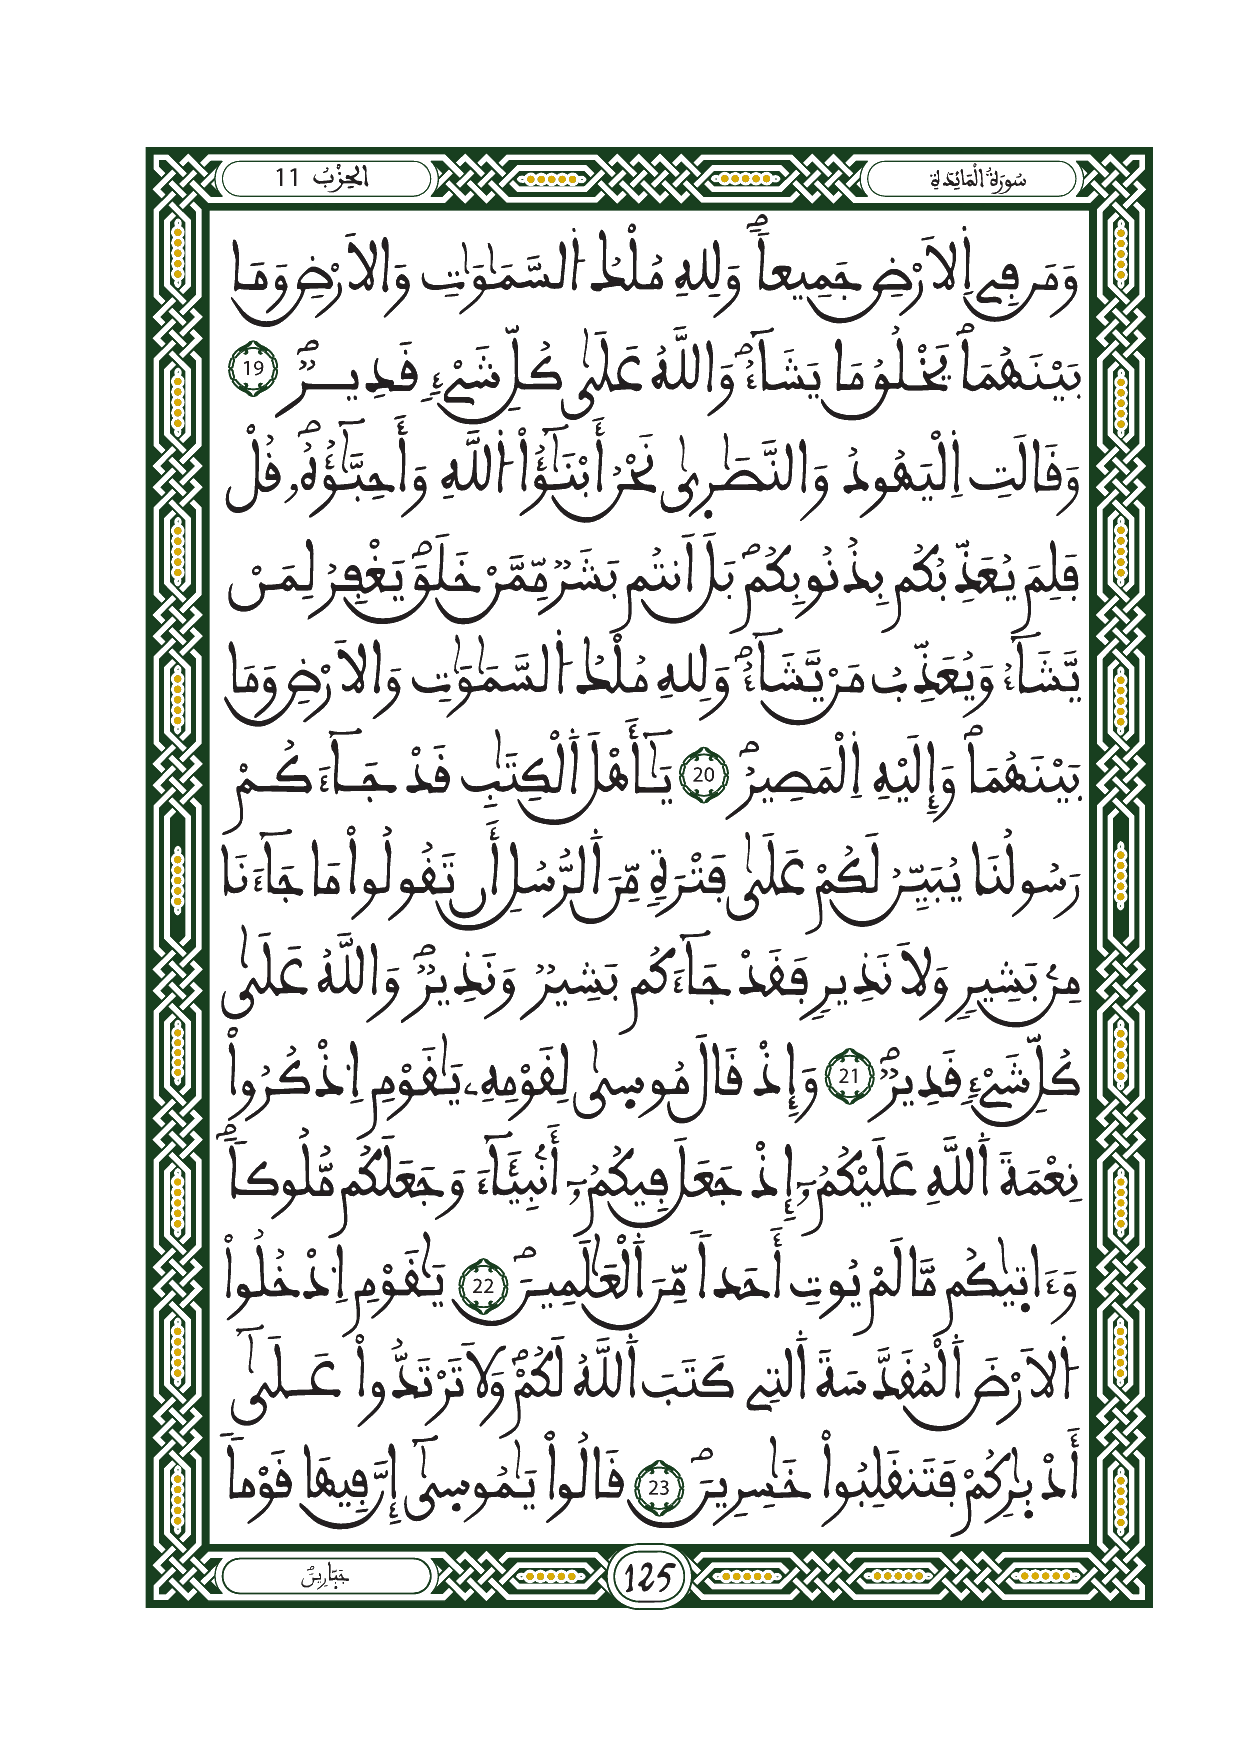 سُورَةُ الْمَائِدَةِ
الحِزْبُ 11
وَمَن فِے اِلَارْضِ جَمِيعاٗۖ وَلِلهِ مُلْكُ اُ۬لسَّمَٰوَٰتِ وَالَارْضِ وَمَا
بَيْنَهُمَاۖ يَخْلُقُ مَا يَشَآءُۖ وَاللَّهُ عَلَىٰ كُلِّ شَےْءٖ قَدِيرٞۖ 19
وَقَالَتِ اِ۬لْيَهُودُ وَالنَّصَٰر۪ىٰ نَحْنُ أَبْنَٰٓؤُاْ اُ۬للَّهِ وَأَحِبَّٰٓؤُهُۥۖ قُلْ
فَلِمَ يُعَذِّبُكُم بِذُنُوبِكُمۖ بَلَ اَنتُم بَشَرٞ مِّمَّنْ خَلَقَۖ يَغْفِرُ لِمَنْ
يَّشَآءُ وَيُعَذِّبُ مَنْ يَّشَآءُۖ وَلِلهِ مُلْكُ اُ۬لسَّمَٰوَٰتِ وَالَارْضِ وَمَا
بَيْنَهُمَاۖ وَإِلَيْهِ اِ۬لْمَصِيرُۖ 20 يَٰٓأَهْلَ اَ۬لْكِتَٰبِ قَدْ جَآءَكُمْ
رَسُولُنَا يُبَيِّنُ لَكُمْ عَلَىٰ فَتْرَةٖ مِّنَ اَ۬لرُّسُلِ أَن تَقُولُواْ مَا جَآءَنَا
مِنۢ بَشِيرٖ وَلَا نَذِيرٖ فَقَدْ جَآءَكُم بَشِيرٞ وَنَذِيرٞۖ وَاللَّهُ عَلَىٰ
كُلِّ شَےْءٖ قَدِيرٞۖ 21 وَإِذْ قَالَ مُوس۪ىٰ لِقَوْمِهِۦ يَٰقَوْمِ اِ۟ذْكُرُواْ
نِعْمَةَ اَ۬للَّهِ عَلَيْكُمُۥٓ إِذْ جَعَلَ فِيكُمُۥٓ أَنۢبِيَآءَ وَجَعَلَكُم مُّلُوكاٗۖ
وَءَات۪يٰكُم مَّا لَمْ يُوتِ أَحَداٗ مِّنَ اَ۬لْعَٰلَمِينَۖ 22 يَٰقَوْمِ اِ۟دْخُلُواْ
اُ۬لَارْضَ اَ۬لْمُقَدَّسَةَ اَ۬لتِے كَتَبَ اَ۬للَّهُ لَكُمْۖ وَلَا تَرْتَدُّواْ عَلَىٰٓ
أَدْبٰ۪رِكُمْ فَتَنقَلِبُواْ خَٰسِرِينَۖ 23 قَالُواْ يَٰمُوس۪ىٰٓ إِنَّ فِيهَا قَوْماٗ
جَبّ۪ارِينَۖ
125